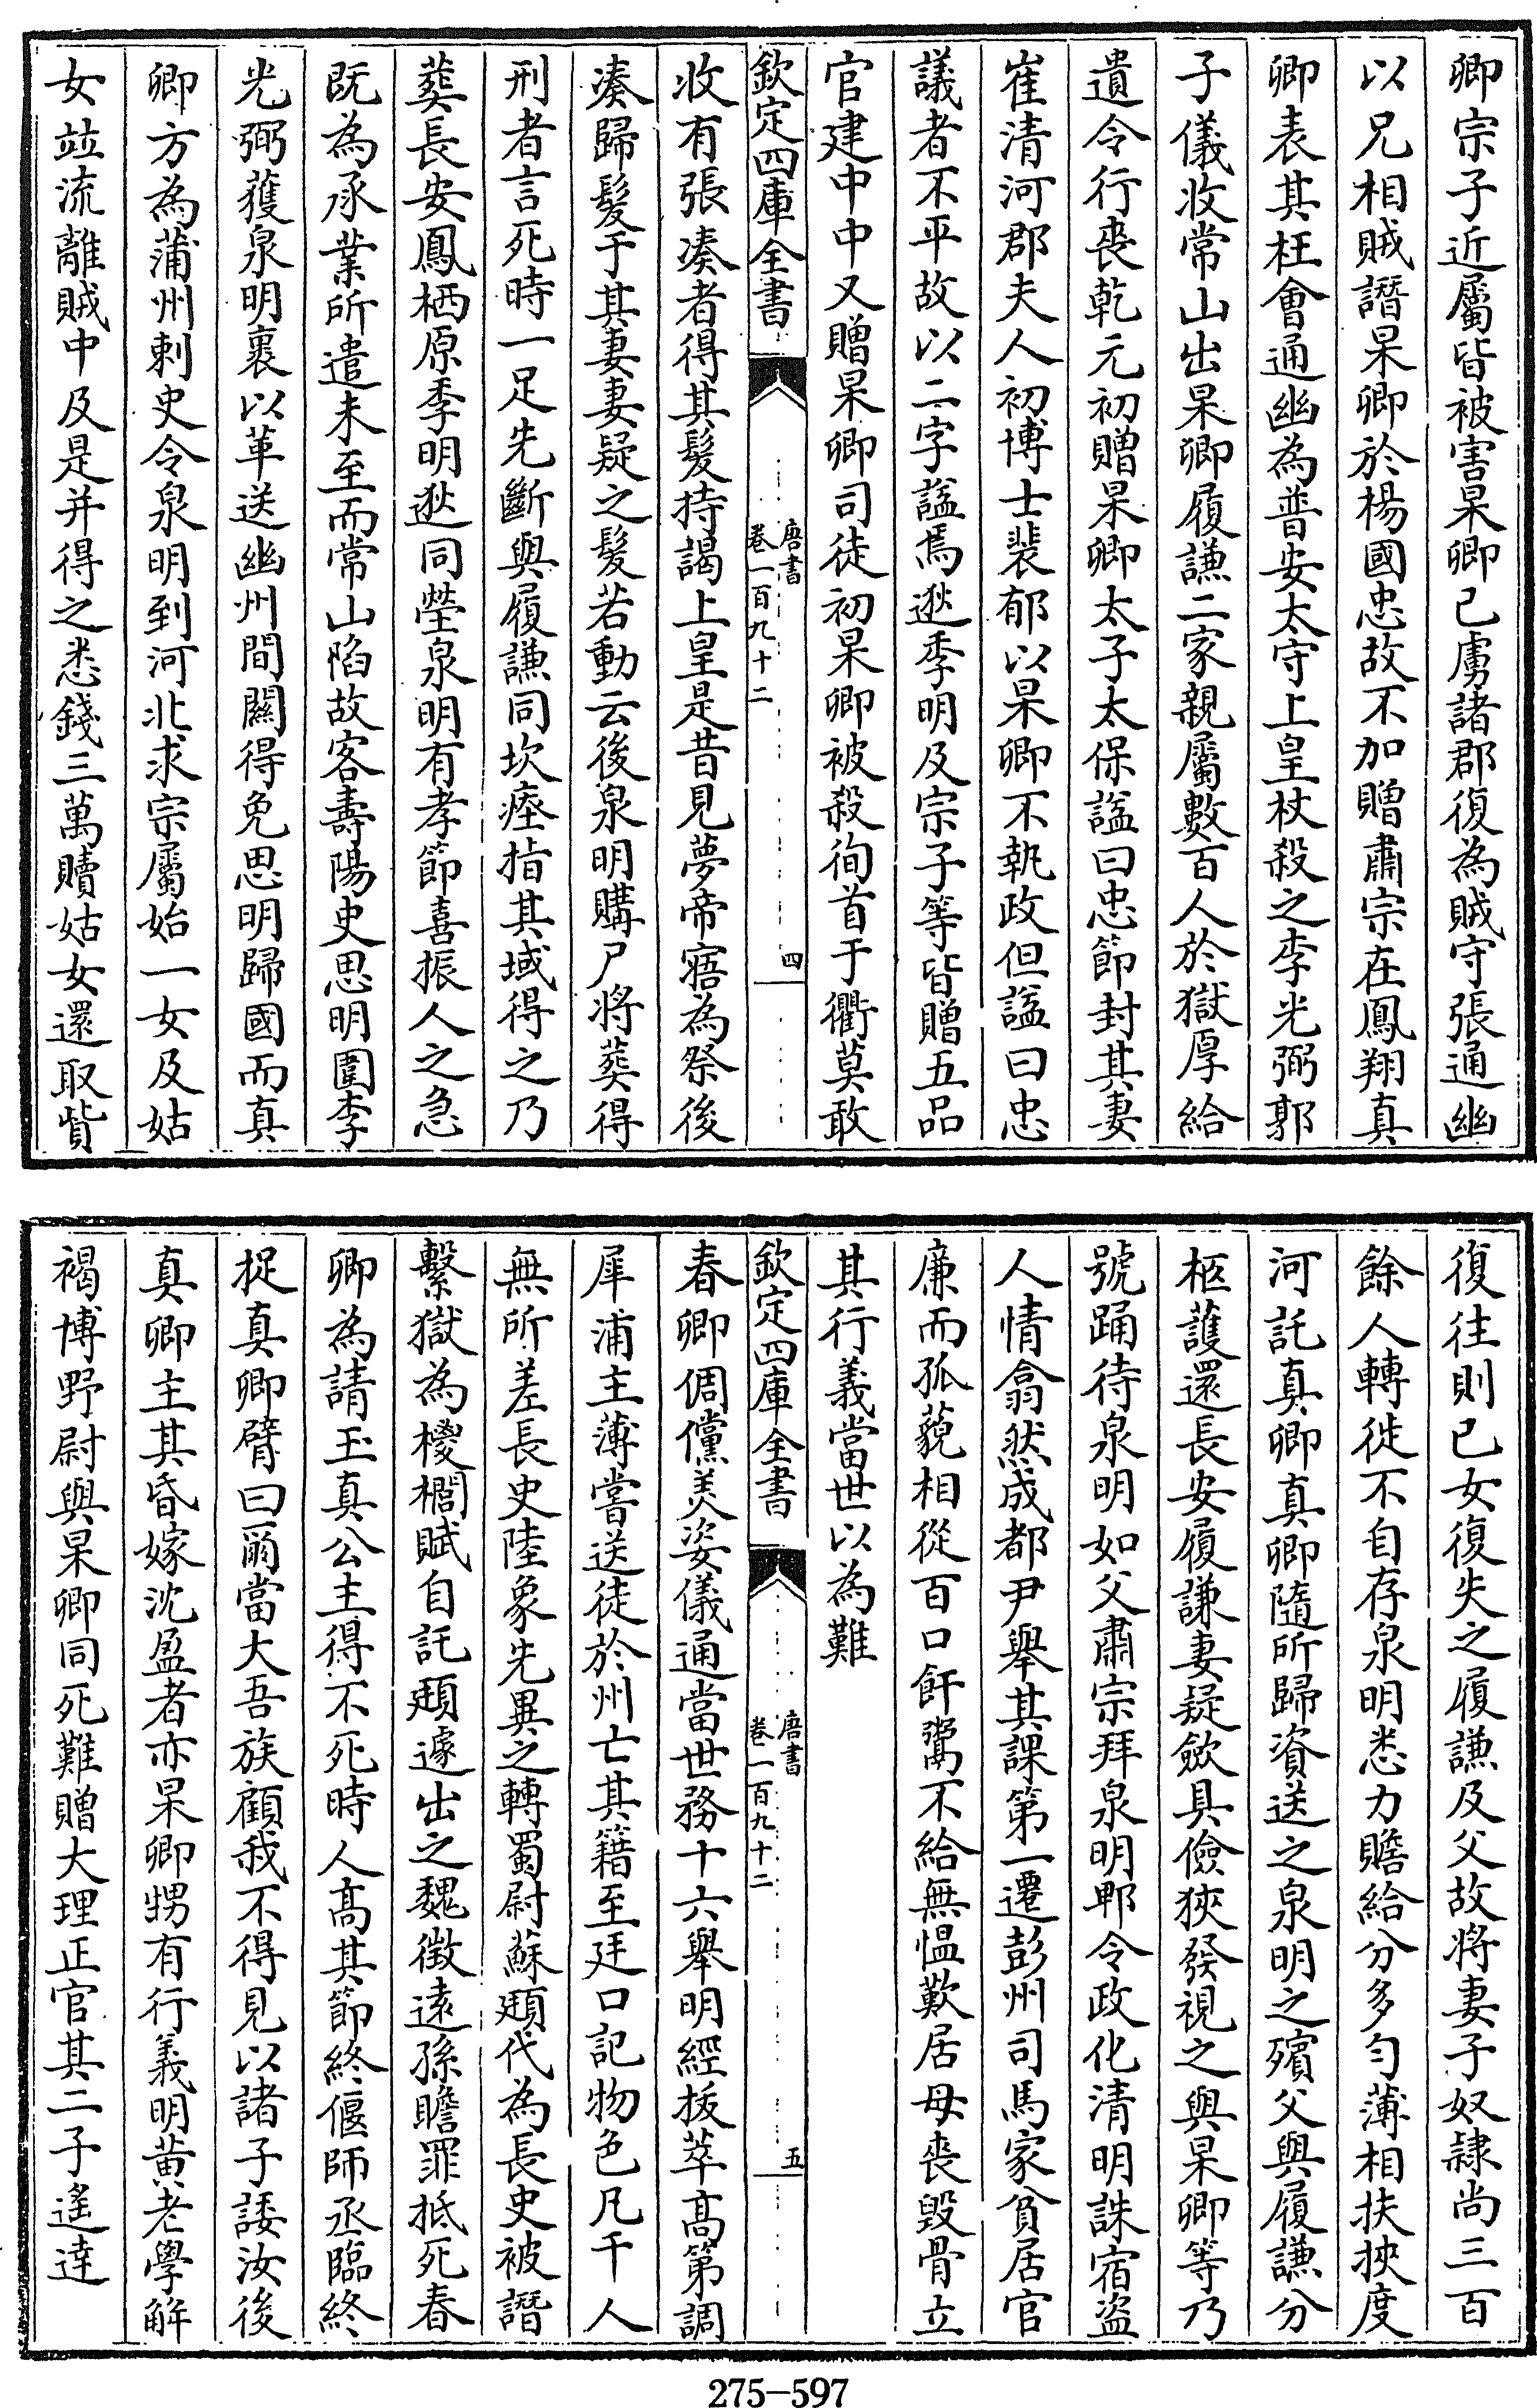 卿宗子近屬皆被害杲卿已虜諸郡復為賊守張通幽
以兄相賊譖杲卿於楊國忠故不加贈肅宗在鳳翔真
卿表其枉會通幽為普安太守上皇杖殺之李光弼郭
子儀收常山出杲卿履謙二家親屬數百人於獄厚給
遺令行喪乾元初贈杲卿太子太保諡曰忠節封其妻
崔清河郡夫人初博士裴郁以杲卿不執政但諡曰忠
議者不平故以二字諡焉逖季明及宗子等皆贈五品
官建中中又贈杲卿司徒初杲卿被殺徇首于衢莫敢
欽定四庫全書
唐書
卷一百九十二
四
收有張湊者得其髮持謁上皇是昔見夢帝寤為祭後
湊歸髮于其妻妻疑之髮若動云後泉明購尸將葬得
刑者言死時一足先斷與履謙同坎瘞指其域得之乃
葬長安鳳栖原季明逖同塋泉明有孝節喜振人之急
既為承業所遣未至而常山陷故客壽陽史思明圍李
光弼獲泉明裹以革送幽州間關得免思明歸國而真
卿方為蒲州刺史令泉明到河北求宗屬始一女及姑
女並流離賊中及是并得之悉錢三萬贖姑女還取貲
復往則已女復失之履謙及父故將妻子奴隸尚三百
餘人轉徙不自存泉明悉力贍給分多勻薄相扶挾度
河託真卿真卿隨所歸資送之泉明之殯父與履謙分
柩護還長安履謙妻疑斂具儉狹發視之與杲卿等乃
號踊待泉明如父肅宗拜泉明郫令政化清明誅宿盜
人情翕然成都尹舉其課第一遷彭州司馬家貧居官
廉而孤藐相從百口飦鬻不給無慍歎居母喪毀骨立
其行義當世以為難
欽定四庫全書
唐書
卷一百九十二
五
春卿倜儻美姿儀通當世務十六舉明經拔萃高第調
犀浦主薄嘗送徒於州亡其籍至廷口記物色凡千人
無所差長史陸象先異之轉蜀尉蘇頲代為長史被譖
繫獄為椶櫚賦自託頲遽出之魏徵遠孫瞻罪抵死春
卿為請玉真公主得不死時人高其節終偃師丞臨終
捉真卿臂曰爾當大吾族顧我不得見以諸子諉汝後
真卿主其昏嫁沈盈者亦杲卿甥有行義明黃老學解
褐博野尉與杲卿同死難贈大理正官其二子遙達
275-597